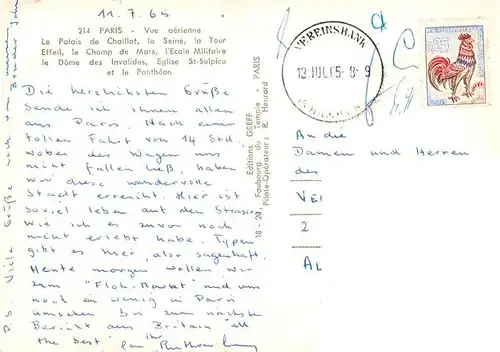 11.7.65
214 PARIS - Vue aérienne
Le Palais de Chaillot, la Seine, la Tour
Eiffel, le Champ de Mars, l'Ecole Militaire
le Dôme des Invalides, Eglise St-Sulpice
et le Panthéon
Die herzlichsten Grüße
sende ich Ihnen allen
aus Paris. Nach einer
tollen Fahrt von 14 Std.
wobei der Wagen uns
nicht fallen ließ, haben
wir diese wundervolle
Stadt erreicht. Hier ist
soviel leben auf den Strassen
wie ich es zuvor noch
nicht erlebt habe. Typen
gibt es hier, also sagenhaft.
Heute morgen wollen wir
zum "Floh-Markt" und uns
noch ein wenig in Paris
umsehen bis zum nächsten
Bericht aus Britain "all
the best" Ihr
P.S. Viele Grüße noch von meinem
Bruder
Editions GREFF
18 - 20, Faubourg du Temple - PARIS
Pilote-Opérateur : R. Henrard
VEREINSBANK
13.JUL.65-8-9
0,25
An die
Damen und Herren
der
VEI
2
AL